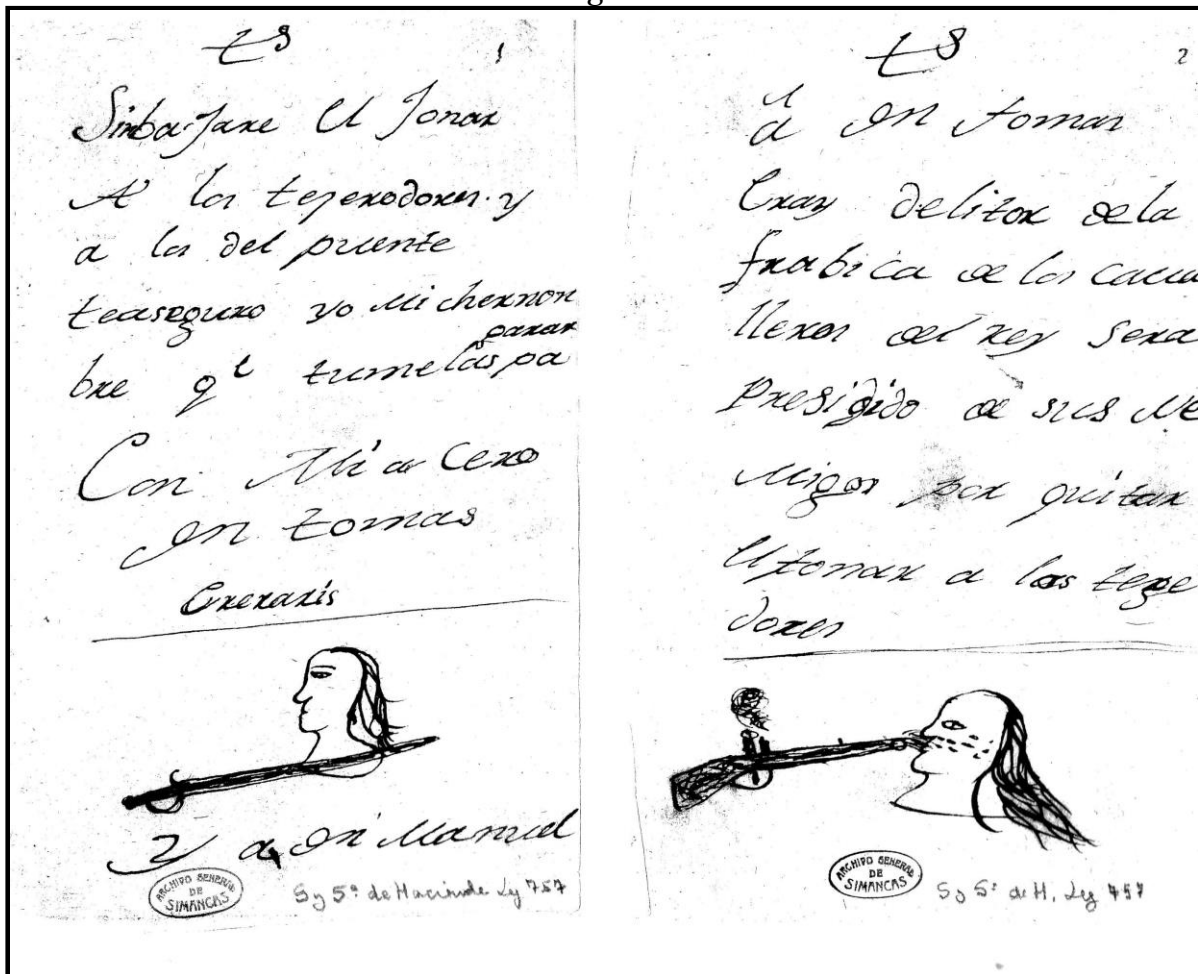 1
Sinba Jare El Jonar
A los tejerodores y
a los del puente
teaseguro yo Michernon
bre qe tumelas pa
garar
Con Mi a Cero
Dn tomas
Y a Dn Manuel
ARCHIVO GENERAL
DE
SIMANCAS
S y Sª de Hacienda Lg 757
2
a Dn tomas
delitor dela
frabica de los Caua
lleros del rey Sera
Presigido de sus Ne
Migos por quitar
El Jonar a los teje
dores
ARCHIVO GENERAL
DE
SIMANCAS
S y Sª de H. Lg 757